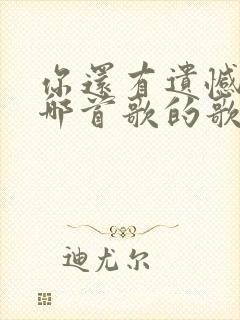 你還有遺憾
那首歌的歌
迪尤尔